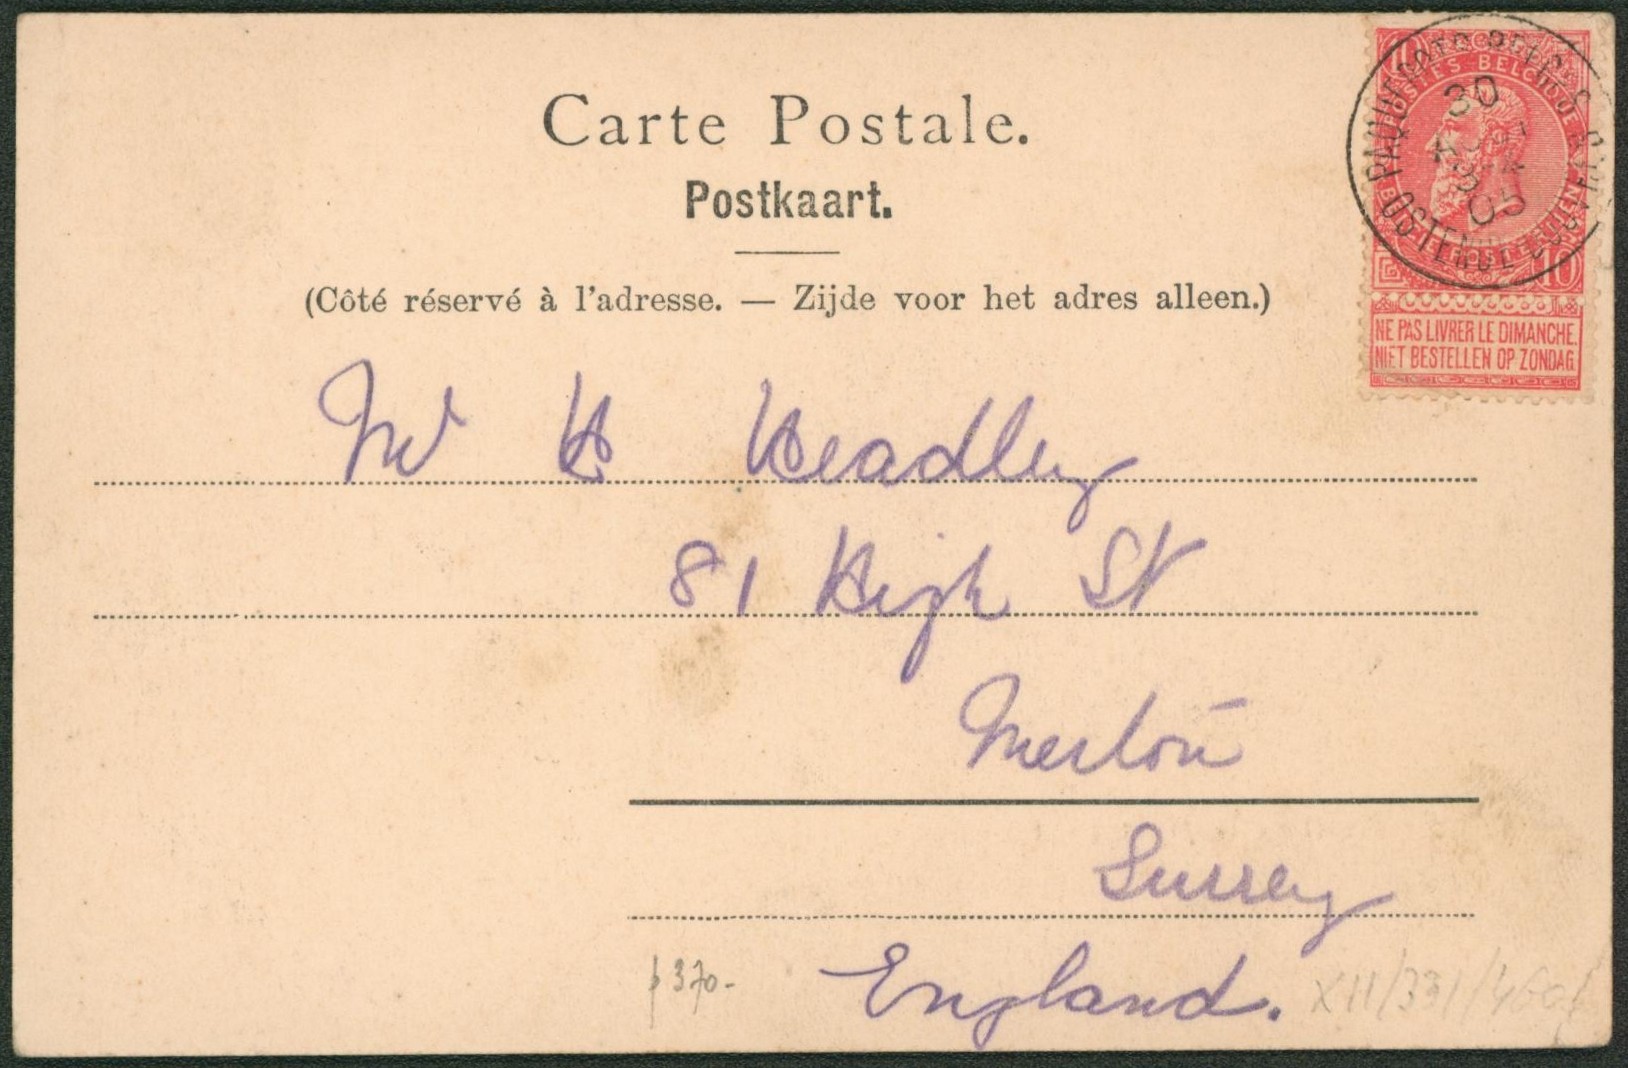 Carte Postale.
Postkaart.
(Côté réservé à l'adresse. — Zijde voor het adres alleen.)
10
POSTES BELGIQUE
10
NE PAS LIVRER LE DIMANCHE.
NIET BESTELLEN OP ZONDAG
PAQUEBOTS
30
05
OSTENDE
Mr H Headley
81 High St
Merton
Surrey
England.
370-
XII/331/